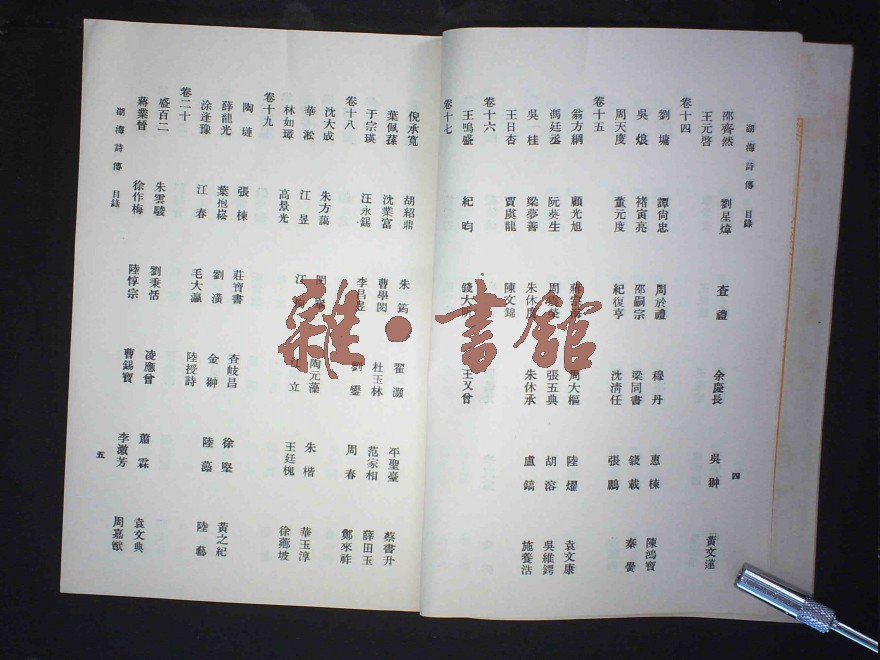 湖海詩傳 目錄 四
邵齊然 劉星煒 查禮 余慶長 吳翀 黃文蓮
王元啓
卷十四
劉墉 譚尙忠 周於禮 穆丹 惠棟 陳鴻寶
吳烺 褚寅亮 邵嗣宗 梁同書 錢載 秦黌
周天度 董元度 紀復亨 沈清任 張鵬
卷十五
翁方綱 顧光旭 周大樞 陸燿 袁文康
馮廷丞 阮葵生 張五典 胡溶 吳維鍔
吳桂 梁夢善 朱休度 朱休承 盧鎬 施養浩
王日杏 賈虞龍 陳文錦
卷十六
王鳴盛 紀昀 錢大昕 王又曾
卷十七
倪承寬 胡紹鼎 朱筠 翟灝 平聖臺 蔡書升
葉佩蓀 沈業富 曹學閔 杜玉林 范家相 薛田玉
于宗瑛 汪永錫 李昌昱 周春 鄭來祚
卷十八
沈大成 朱方藹 陶元藻 朱楷 華玉淳
華淞 江昱 江立 王廷槐 徐薌坡
林如璋 高景光
卷十九
陶璉 張棟 莊寶書 查岐昌 徐堅 黃之紀
薛龍光 葉抱崧 劉潢 金翀 陸藝
涂逢豫 江春 毛大瀛 陸授詩
卷二十
盛百二 朱雲駿 劉秉恬 凌應曾 蕭霖 袁文典
蔣業晉 徐作梅 陸惇宗 曹錫寶 李漱芳 周嘉猷
湖海詩傳 目錄 五
雜·書館